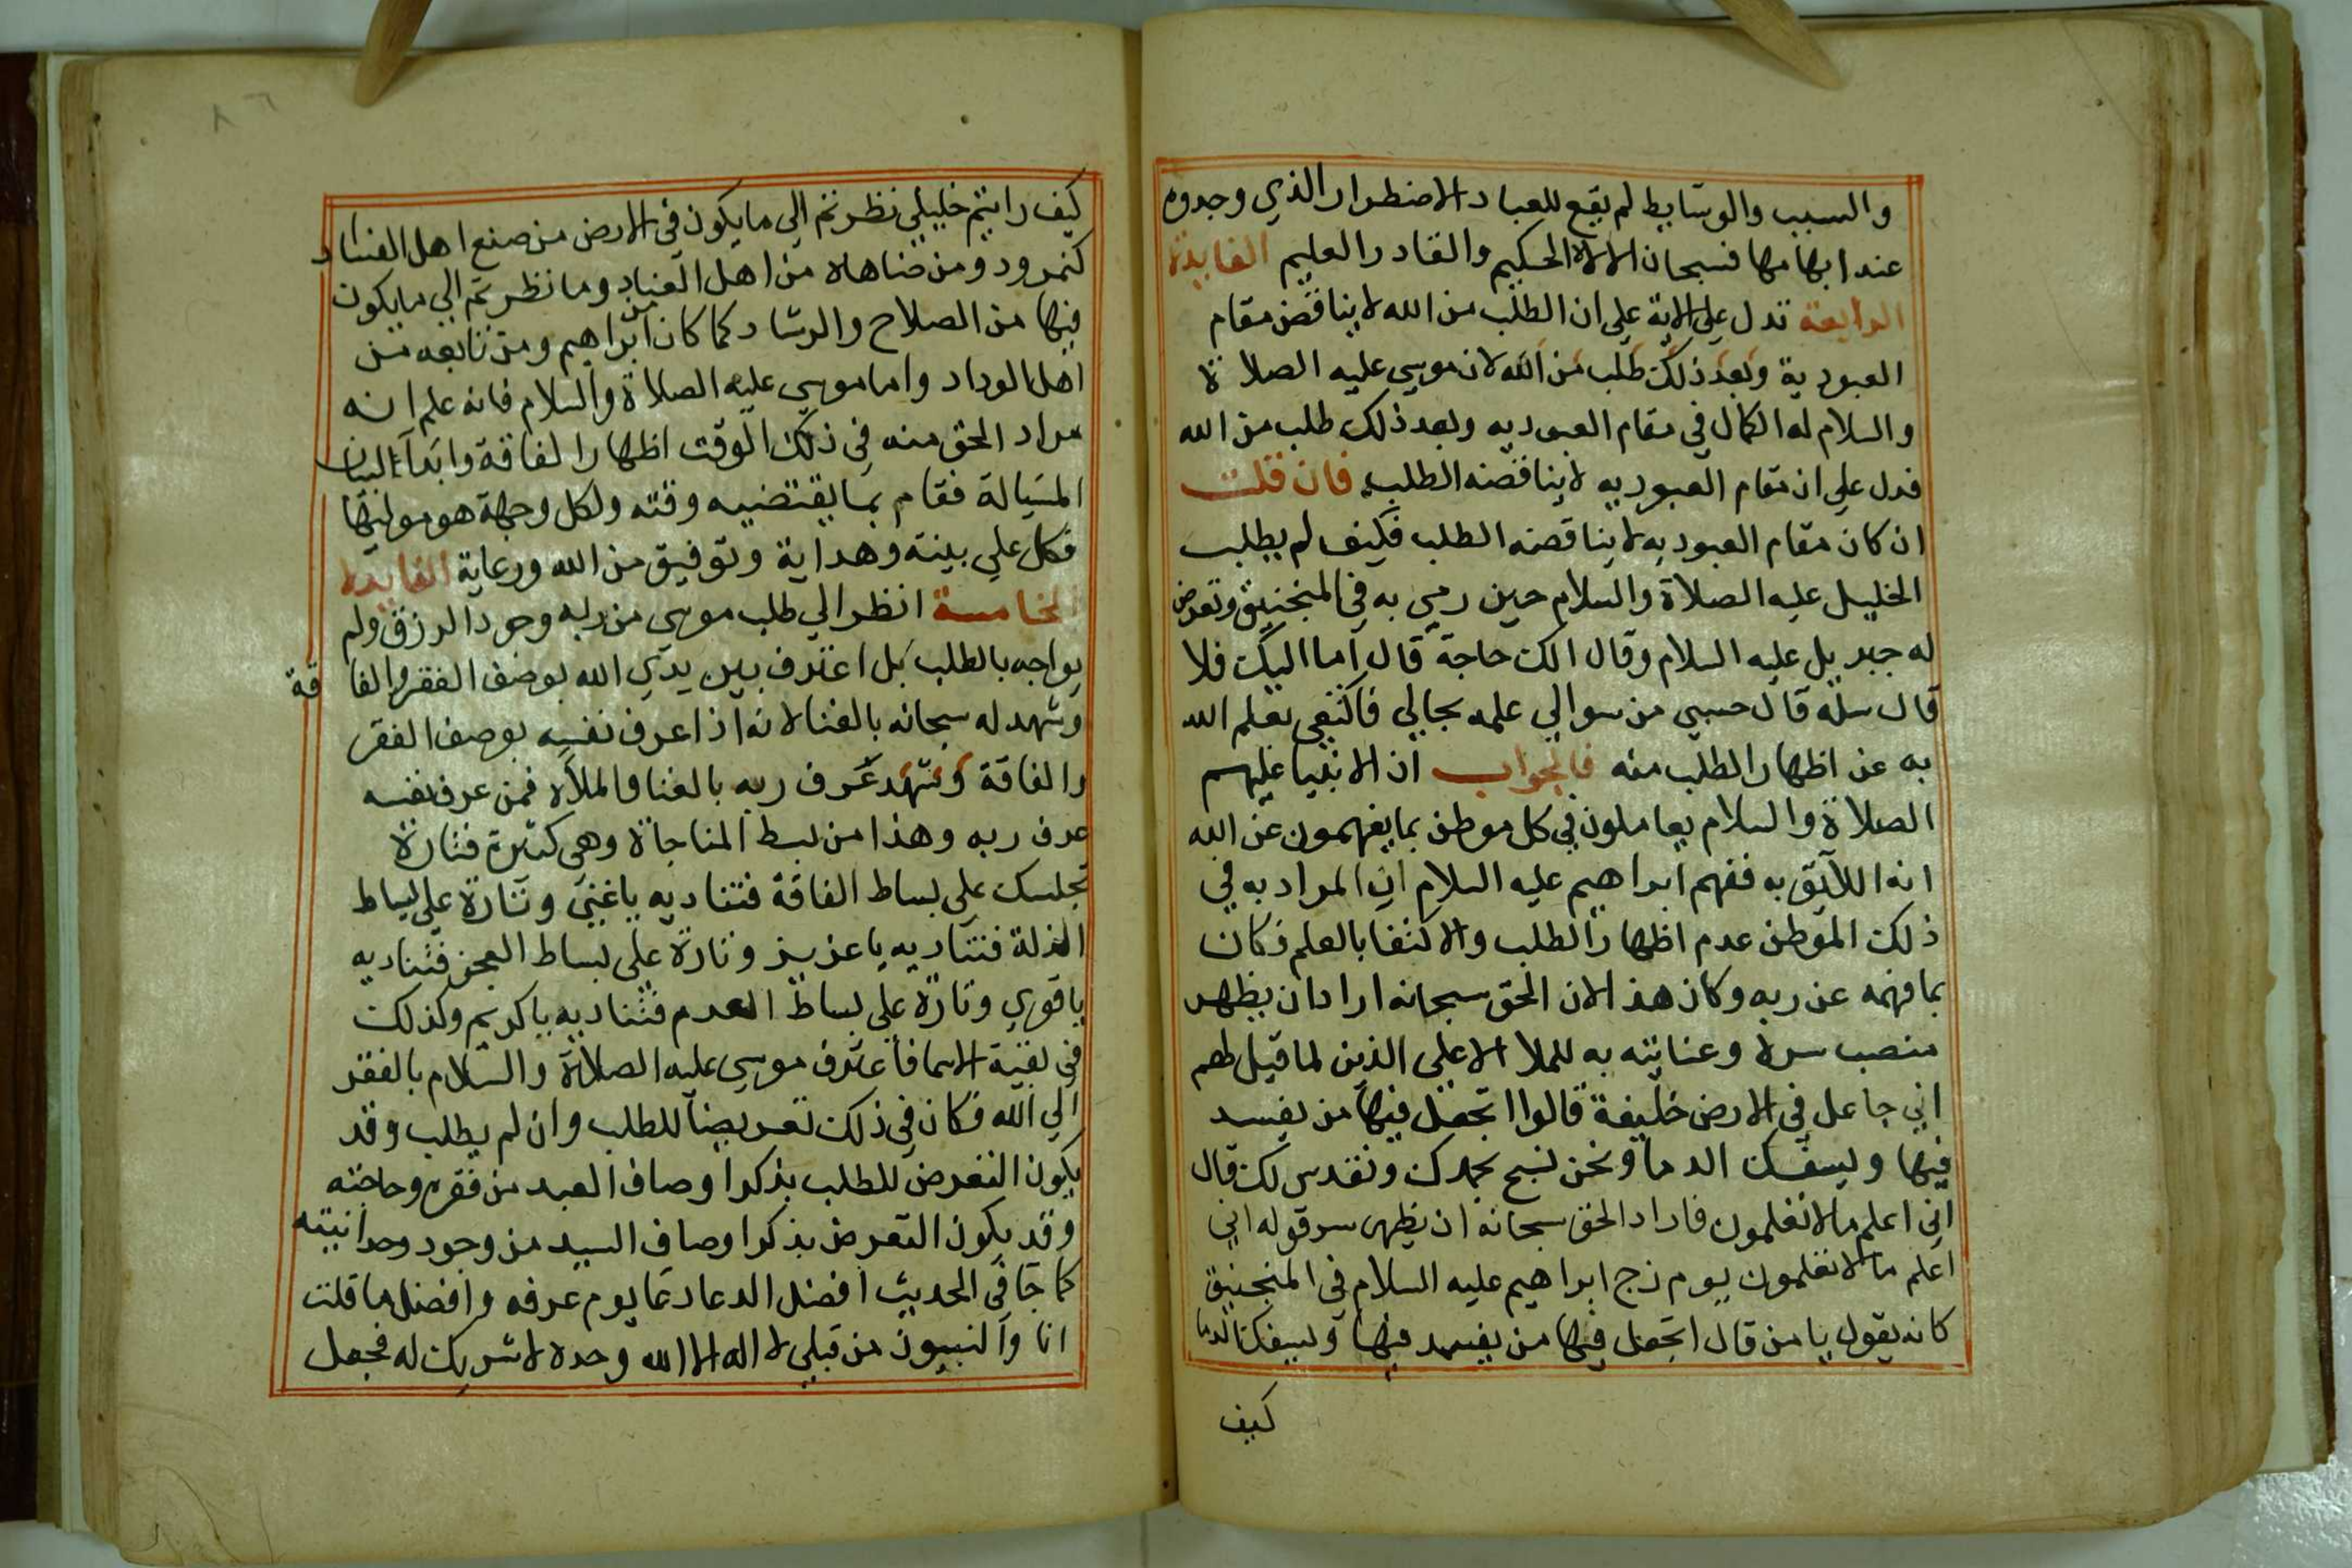 والسبب والوسايط لم يقع للعباد الاضطرار الذي وجدوه
عند ابهامها فسبحان الاله الحكيم والقادر العليم الفايدة
الرابعة تدل على الاية على ان الطلب من الله لا يناقض مقام
العبودية وبعد ذلك طلب من الله لان موسى عليه الصلاة
والسلام له الكمال في مقام العبوديه وبعد ذلك طلب من الله
فدل على ان مقام العبوديه لا يناقضه الطلب فان قلت
ان كان مقام العبوديه لا يناقضه الطلب فكيف لم يطلب
الخليل عليه الصلاة والسلام حين رمي به في المنجنيق وتعرض
له جبريل عليه السلام وقال الك حاجة قال اما اليك فلا
قال سله قال حسبي من سوالي علمه بحالي فاكتفى بعلم الله
به عن اظهار الطلب منه فالجواب ان الانبيا عليهم
الصلاة والسلام يعاملون في كل موطن بما يفهمون عن الله
انه اللآيق به ففهم ابراهيم عليه السلام ان المراد به في
ذلك الموطن عدم اظهار الطلب والاكتفا بالعلم فكان
بما فهمه عن ربه وكان هذا لان الحق سبحانه اراد ان يظهر
منصب سره وعنايته به للملا الاعلى الذين لما قيل لهم
اني جاعل في الارض خليفة قالوا اتجعل فيها من يفسد
فيها ويسفك الدما ونحن نسبح بحمدك ونقدس لك قال
اني اعلم مالا تعلمون فاراد الحق سبحانه ان يظهر سر قوله اني
اعلم مالا تعلمون يوم زج ابراهيم عليه السلام في المنجنيق
كانه يقول يا من قال اتجعل فيها من يفسد فيها ويسفك الدما
كيف
كيف رايتم خليلي نظرتم الى ما يكون في الارض من صنع اهل الفساد
كنمرود ومن ضاهاه من اهل العناد وما نظرتم الي ما يكون
فيها من الصلاح والرشاد كما كان من ابراهيم ومن تابعه من
اهل الوداد واما موسى عليه الصلاة والسلام فانه علم انه
مراد الحق منه في ذلك الوقت اظهار الفاقة وابدآ لسان
المسيالة فقام بما يقتضيه وقته ولكل وجهة هو موليها
فكل على بينة وهداية وتوفيق من الله ورعاية الفايدة
الخامسة انظر الي طلب موسى من ربه وجود الرزق ولم
يواجه بالطلب بل اعترف بين يدي الله بوصف الفقر والفاقة
وشهد له سبحانه بالغنا لانه اذا عرف نفسه بوصف الفقر
والفاقة وشهد عرف ربه بالغنا والملأه فمن عرف نفسه
عرف ربه وهذا من بسط المناجاة وهي كثيرة فتارة
تجلسك على بساط الفاقة فتناديه ياغني وتارة على بساط
الذلة فتناديه يا عزيز وتارة على بساط العجز فتناديه
يا قوي وتارة على بساط العدم فتناديه يا كريم وكذلك
في بقية الاسما فاعترف موسى عليه الصلاة والسلام بالفقر
الي الله فكان في ذلك تعريضا للطلب وان لم يطلب وقد
يكون التعرض للطلب بذكر اوصاف العبد من فقره وحاجته
وقد يكون التعرض بذكر اوصاف السيد من وجود وحدانيته
كما جا في الحديث افضل الدعا دعا يوم عرفه وافضل ما قلت
انا والنبيون من قبلي لا اله الا الله وحده لا شريك له فجعل